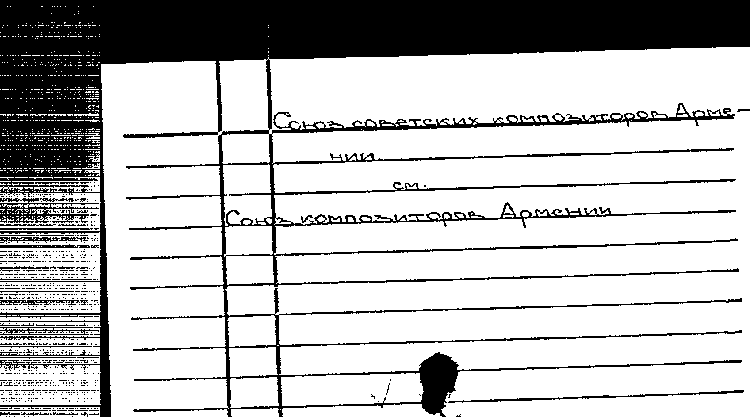 Союз советских композиторов Арме-
нии
см.
Союз композиторов Армении